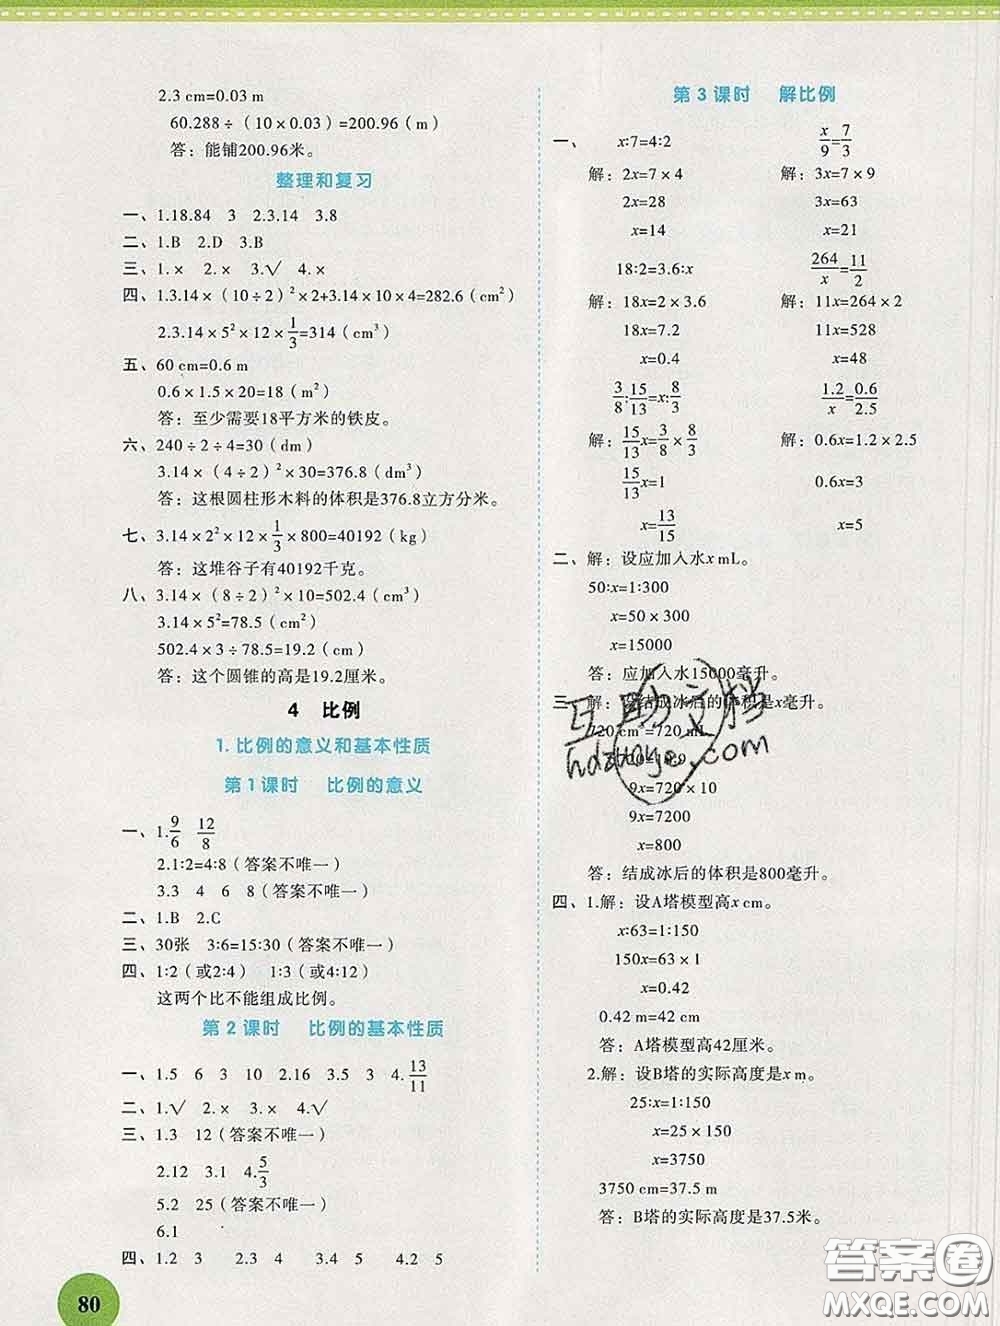 2.3 cm=0.03 m
60.288÷(10×0.03)=200.96(m)
答：能铺200.96米。
整理和复习
一、1.18.84 3 2.3.14 3.8
二、1.B 2.D 3.B
三、1.× 2.× 3.√ 4.×
四、1.3.14×(10÷2)²×2+3.14×10×4=282.6(cm²)
2.3.14×5²×12×1/3=314(cm³)
五、60 cm=0.6 m
0.6×1.5×20=18(m²)
答：至少需要18平方米的铁皮。
六、240÷2÷4=30(dm)
3.14×(4÷2)²×30=376.8(dm³)
答：这根圆柱形木料的体积是376.8立方分米。
七、3.14×2²×12×1/3×800=40192(kg)
答：这堆谷子有40192千克。
八、3.14×(8÷2)²×10=502.4(cm³)
3.14×5²=78.5(cm²)
502.4×3÷78.5=19.2(cm)
答：这个圆锥的高是19.2厘米。
4 比例
1.比例的意义和基本性质
第1课时 比例的意义
一、1.9/6 12/8
2.1∶2=4∶8(答案不唯一)
3.3 4 6 8(答案不唯一)
二、1.B 2.C
三、30张 3∶6=15∶30(答案不唯一)
四、1∶2(或2∶4) 1∶3(或4∶12)
这两个比不能组成比例。
第2课时 比例的基本性质
一、1.5 6 3 10 2.16 3.5 3 4.13/11
二、1.√ 2.× 3.× 4.√
三、1.3 12(答案不唯一)
2.12 3.1 4.5/3
5.2 25(答案不唯一)
6.1
四、1.2 3 2.3 4 3.4 5 4.2 5
80
第3课时 解比例
一、 x∶7=4∶2 x/9=7/3
解：2x=7×4 解：3x=7×9
2x=28 3x=63
x=14 x=21
18∶2=3.6∶x 264/x=11/2
解：18x=2×3.6 解：11x=264×2
18x=7.2 11x=528
x=0.4 x=48
3/8∶15/13=x∶8/3 1.2/x=0.6/2.5
解：15/13x=3/8×8/3 解：0.6x=1.2×2.5
15/13x=1 0.6x=3
x=13/15 x=5
二、解：设应加入水x mL。
50∶x=1∶300
x=50×300
x=15000
答：应加入水15000毫升。
三、解：设结成冰后的体积是x毫升。
720 cm³=720 mL
9x=720×10
9x=7200
x=800
答：结成冰后的体积是800毫升。
四、1.解：设A塔模型高x cm。
x∶63=1∶150
150x=63×1
x=0.42
0.42 m=42 cm
答：A塔模型高42厘米。
2.解：设B塔的实际高度是x m。
25∶x=1∶150
x=25×150
x=3750
3750 cm=37.5 m
答：B塔的实际高度是37.5米。
互助文档
hdzuoye.com
答案圈
MXQE.COM